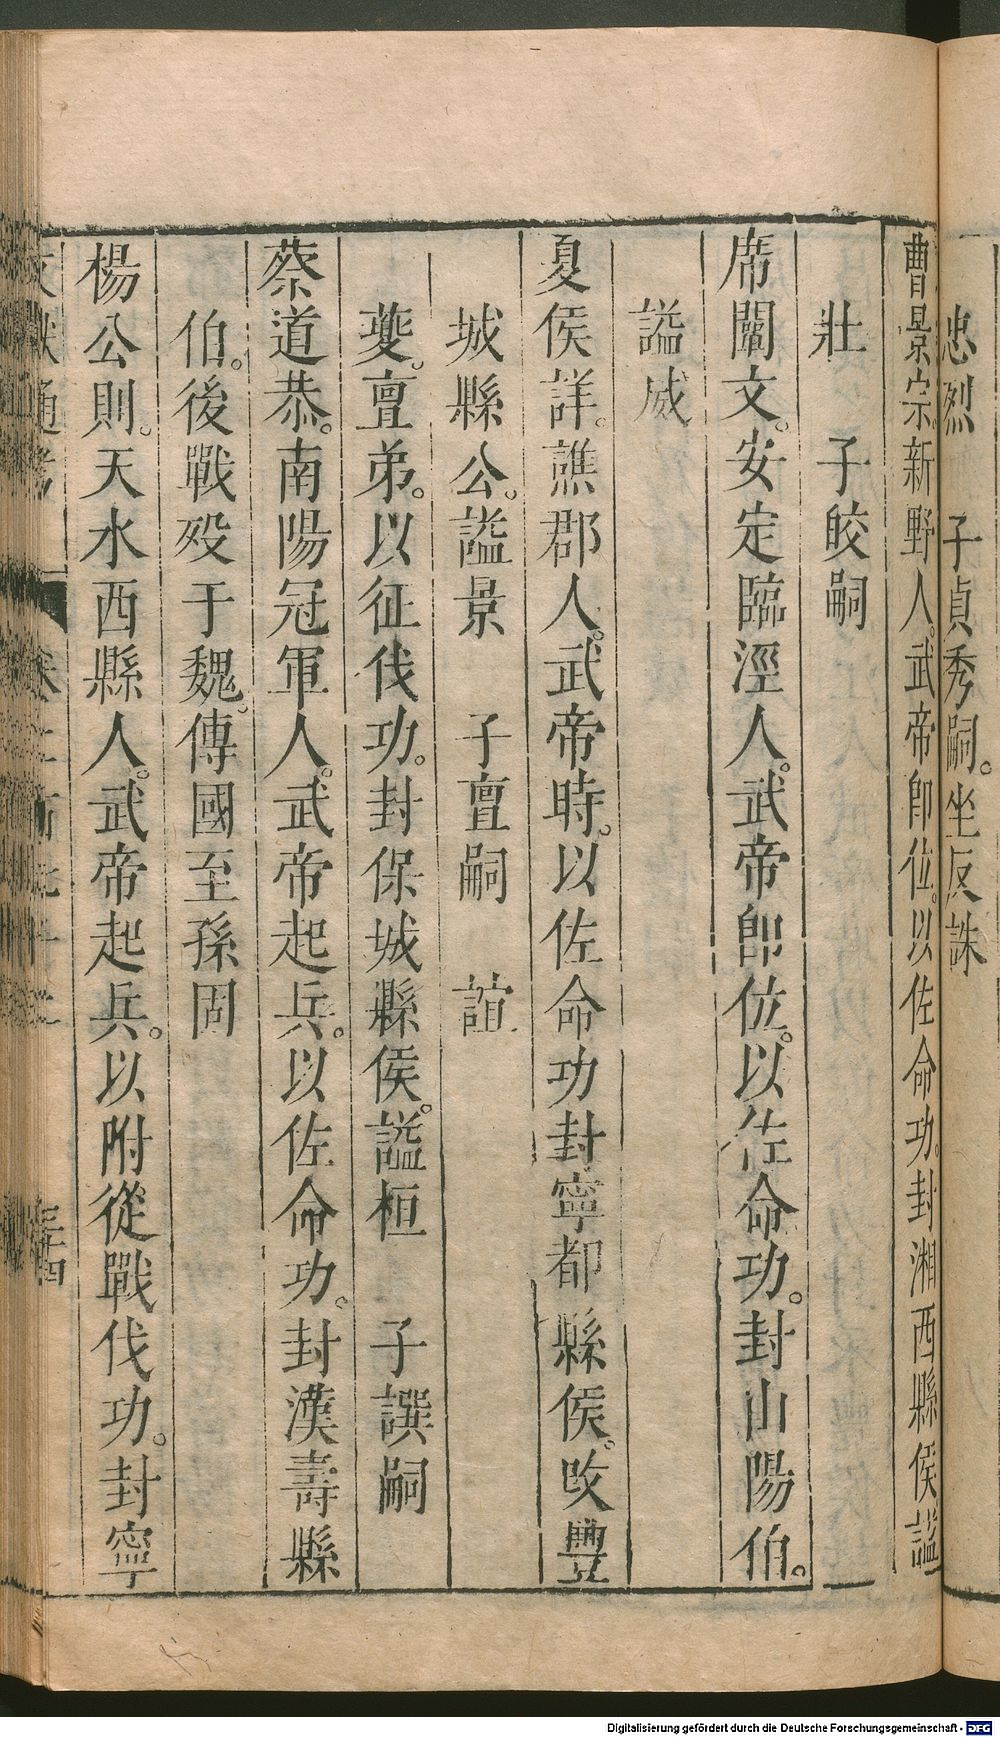 忠烈　子貞秀嗣。坐反誅
曹景宗。新野人。武帝即位。以佐命功。封湘西縣侯謚
壯　子皎嗣
席闡文。安定臨涇人。武帝即位。以佐命功。封山陽伯。
謚威
夏侯詳。譙郡人。武帝時。以佐命功封寧都縣侯。改豐
城縣公。謚景　子亶嗣　誼
夔。亶弟。以征伐功。封保城縣侯。謚桓　子譔嗣
蔡道恭。南陽冠軍人。武帝起兵。以佐命功。封漢壽縣
伯。後戰歿于魏。傳國至孫固
楊公則。天水西縣人。武帝起兵。以附從戰伐功。封寧
文獻通考
Digitalisierung gefördert durch die Deutsche Forschungsgemeinschaft - DFG